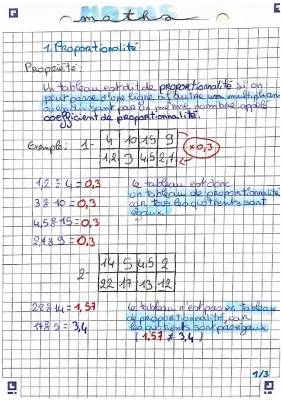 maths
1. Proportionalité
Propriété:
Un tableau est dit de proportionnalité si on
peut passer d'une ligne à l'autre en multipliant
par un même nombre appelé
coefficient de proportionnalité.
Exemple: 1- 4 10 15 9 ×0,3
1,2 3 4,5 2,7
1,2 ÷ 4 = 0,3 Le tableau est donc
un tableau de proportionnalité
3 ÷ 10 = 0,3 car tous les quotients sont
égaux.
4,5 ÷ 15 = 0,3
2,7 ÷ 9 = 0,3
2- 14 5 4,5 2
22 17 13 12
22 ÷ 14 = 1,57 Le tableau n'est pas un tableau
de proportionnalité, car
17 ÷ 5 = 3,4 les quotients sont pas égaux
(1,57 ≠ 3,4)
1/3